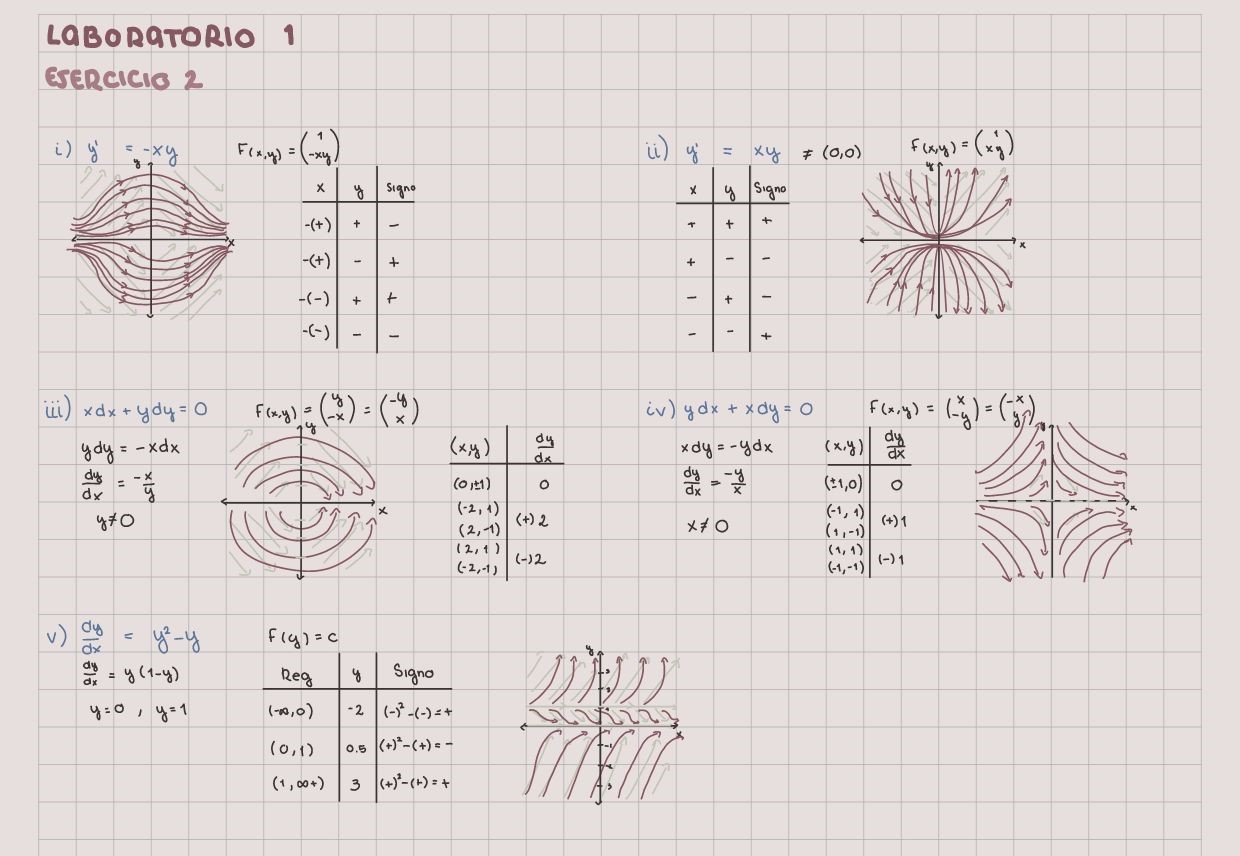 LABORATORIO 1
EJERCICIO 2
i) y' = -xy
F(x,y) = (1 -xy)
y
x
x y Signo
-(+) + -
-(+) - +
-(-) + +
-(-) - -
ii) y' = xy ≠ (0,0)
F(x,y) = (1 xy)
x y Signo
+ + +
+ - -
- + -
- - +
y
x
iii) xdx + ydy = 0
F(x,y) = (y -x) = (-y x)
ydy = -xdx
dy/dx = -x/y
y ≠ 0
y
x
(x,y) dy/dx
(0,±1) 0
(-2,1)
(2,-1) (+)2
(2,1)
(-2,-1) (-)2
iv) ydx + xdy = 0
F(x,y) = (x -y) = (-x y)
xdy = -ydx
dy/dx = -y/x
x ≠ 0
(x,y) dy/dx
(±1,0) 0
(-1,1)
(1,-1) (+)1
(1,1)
(-1,-1) (-)1
y
x
v) dy/dx = y²-y
dy/dx = y(1-y)
y=0 , y=1
F(y) = c
Reg y Signo
(-∞,0) -2 (-)²-(-)=+
(0,1) 0.5 (+)²-(+)=-
(1,∞+) 3 (+)²-(+)=+
y
x